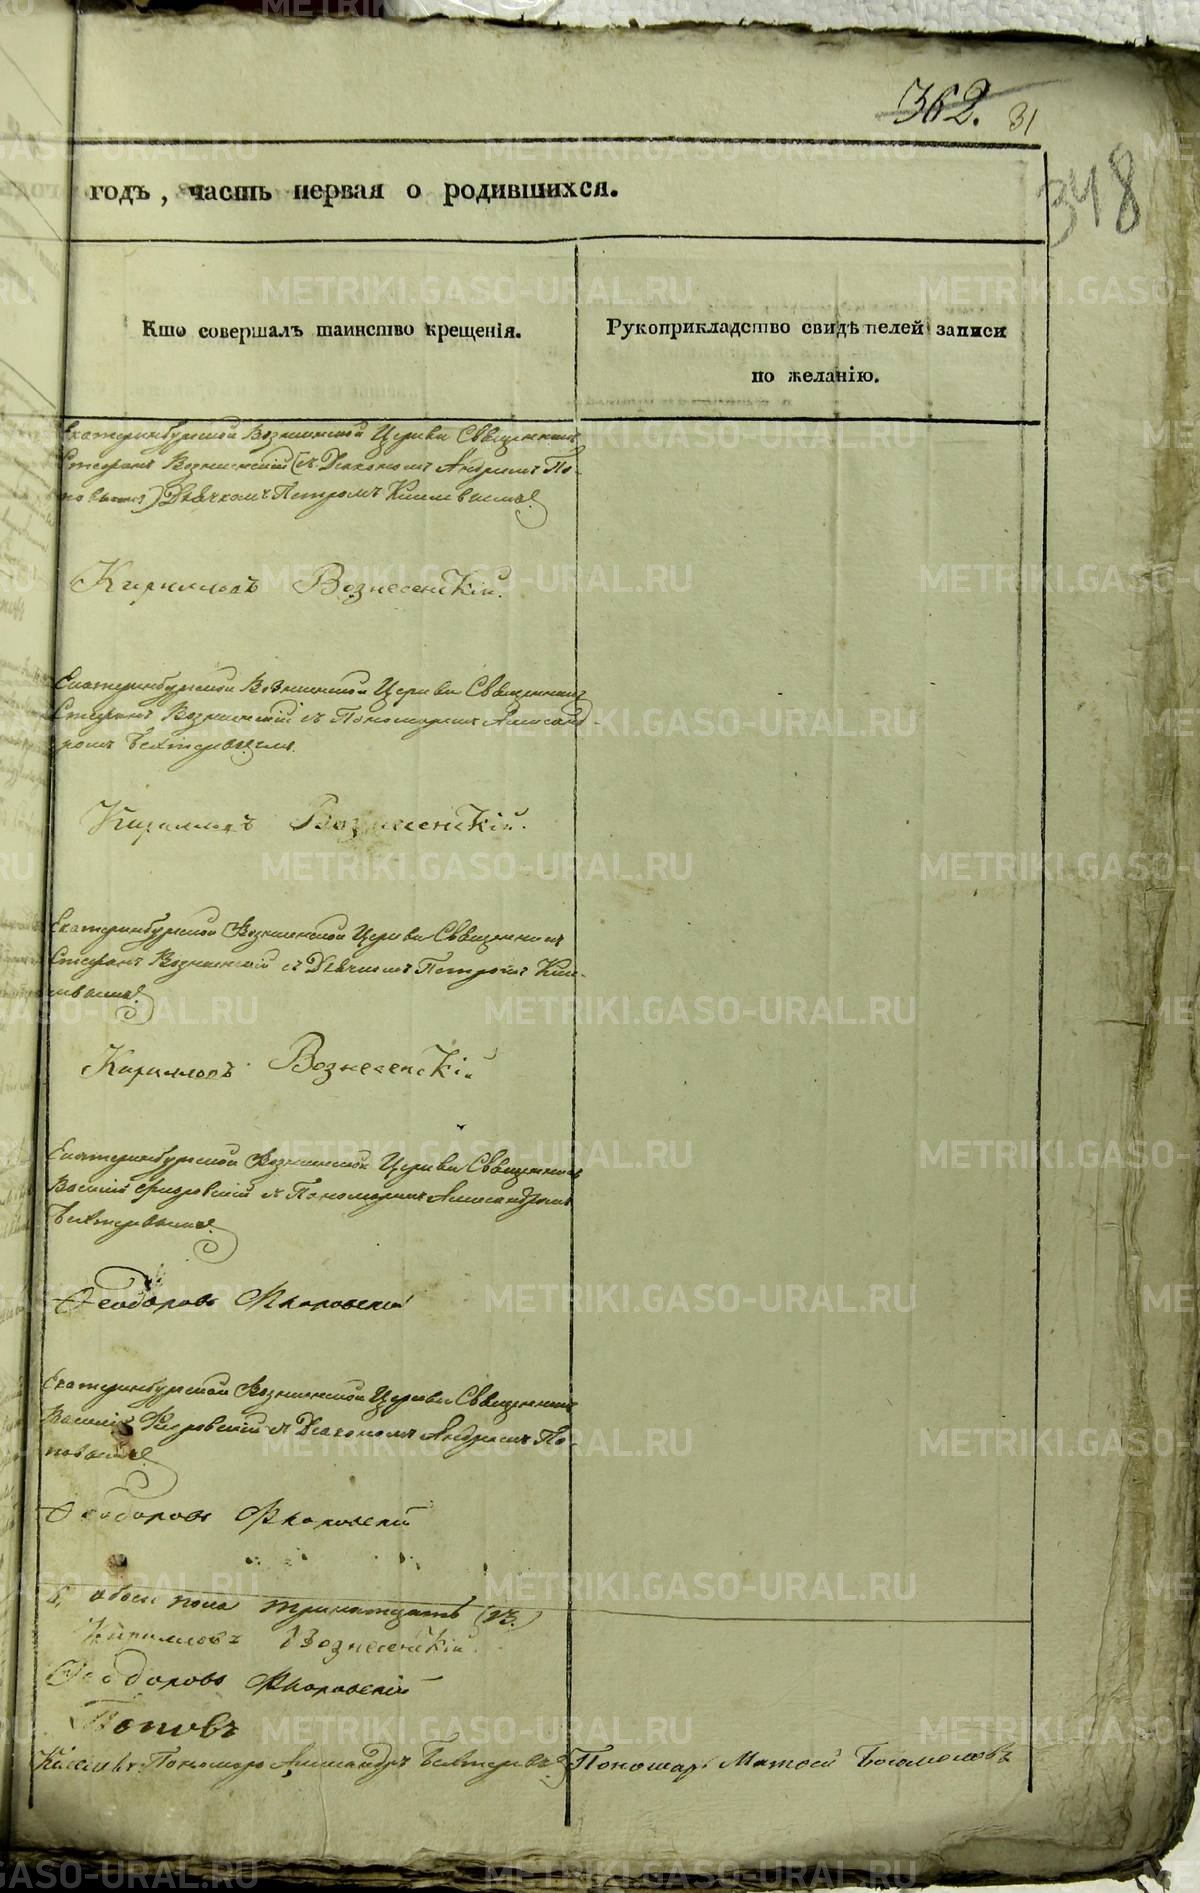 362. 31
348
годъ, часть первая о родившихся.
Кто совершалъ таинство крещенія.
Рукоприкладство свидѣтелей записи
по желанію.
Екатеринбургской Вознесенской Церкви Священникъ
Стефанъ Вознесенскій (съ Діакономъ Андреемъ По-
повымъ) Дьячкомъ Петромъ
Кирилловъ Вознесенскій.
Екатеринбургской Вознесенской Церкви Священникъ
Стефанъ Вознесенскій съ Пономаремъ Александ-
ромъ Бехтеревымъ.
Кирилловъ Вознесенскій.
Екатеринбургской Вознесенской Церкви Священникъ
Стефанъ Вознесенскій съ Дьячкомъ Петромъ
Кирилловъ Вознесенскій
Екатеринбургской Вознесенской Церкви Священникъ
Василій Флоровскій съ Пономаремъ Александромъ
Бехтеревымъ.
Ѳеодоровъ Флоровскій
Екатеринбургской Вознесенской Церкви Священникъ
Василій Флоровскій съ Діакономъ Андреемъ По-
повымъ.
Ѳеодоровъ Флоровскій
обоего пола тринатцать (13.)
Кирилловъ Вознесенскій.
Ѳеодоровъ Флоровскій
Поповъ
Пономарь Александръ Бехтеревъ. Пономарь Матвей Богомоловъ
METRIKI.GASO-URAL.RU